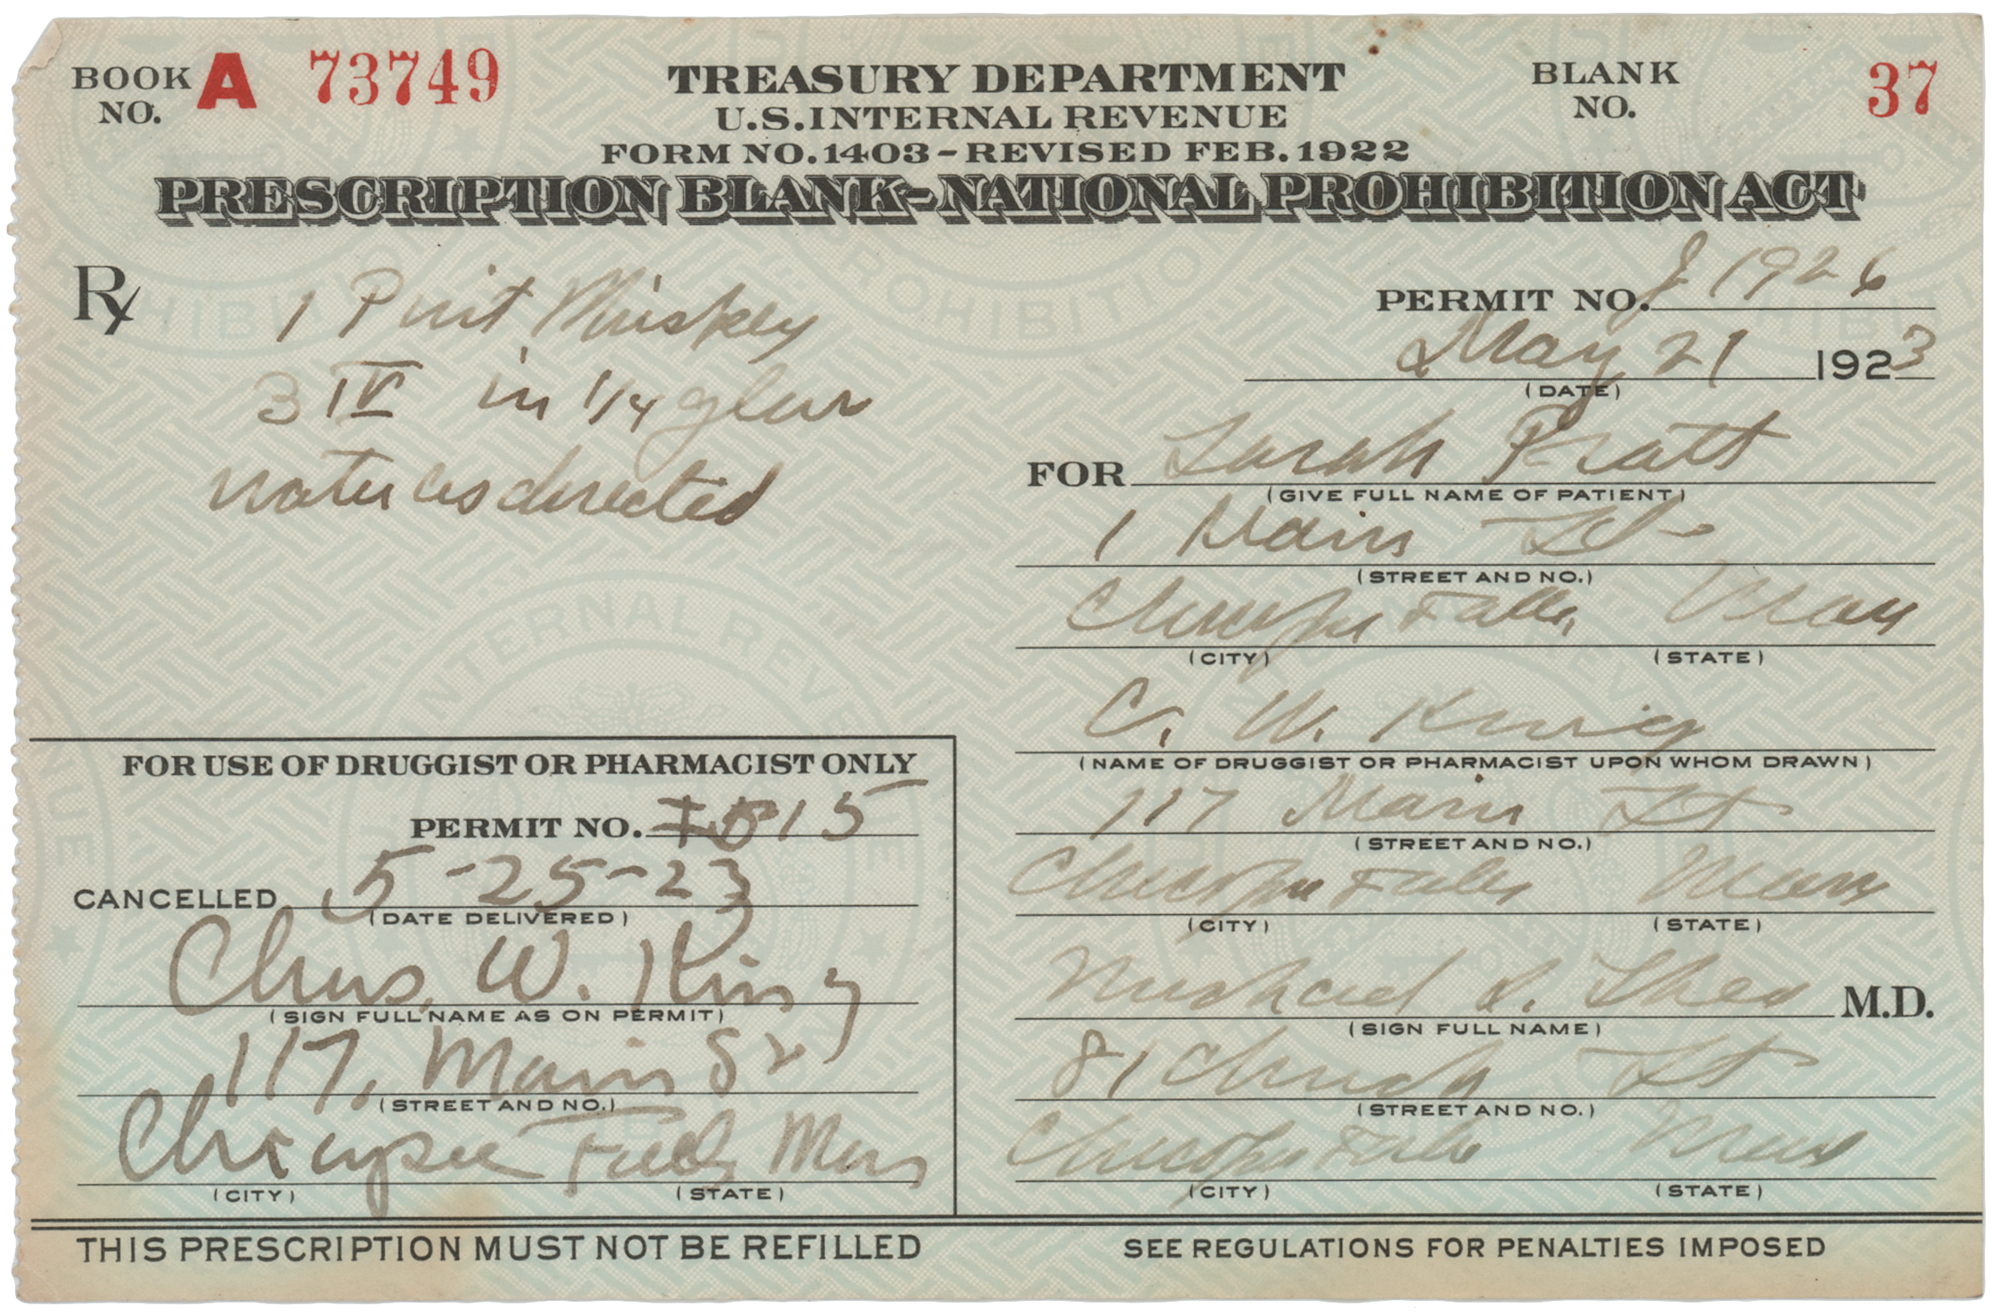 BOOK NO. A 73749
TREASURY DEPARTMENT
U.S. INTERNAL REVENUE
FORM NO. 1403 - REVISED FEB. 1922
BLANK NO. 37
PRESCRIPTION BLANK - NATIONAL PROHIBITION ACT
Rx
1 Pint Whiskey
℥ IV in 1/4 glass
water as directed
PERMIT NO. 1926
May 21 1923
(DATE)
FOR Sarah Pratt
(GIVE FULL NAME OF PATIENT)
1 Main St
(STREET AND NO.)
Chicopee Falls, Mass
(CITY) (STATE)
C. W. King
(NAME OF DRUGGIST OR PHARMACIST UPON WHOM DRAWN)
117 Main St
(STREET AND NO.)
Chicopee Falls Mass
(CITY) (STATE)
Michael L. Shea M.D.
(SIGN FULL NAME)
81 Church St
(STREET AND NO.)
Chicopee Falls Mass
(CITY) (STATE)
FOR USE OF DRUGGIST OR PHARMACIST ONLY
PERMIT NO. 15
CANCELLED 5-25-23
(DATE DELIVERED)
Chas. W. King
(SIGN FULL NAME AS ON PERMIT)
117, Main St
(STREET AND NO.)
Chicopee Falls Mass
(CITY) (STATE)
THIS PRESCRIPTION MUST NOT BE REFILLED
SEE REGULATIONS FOR PENALTIES IMPOSED